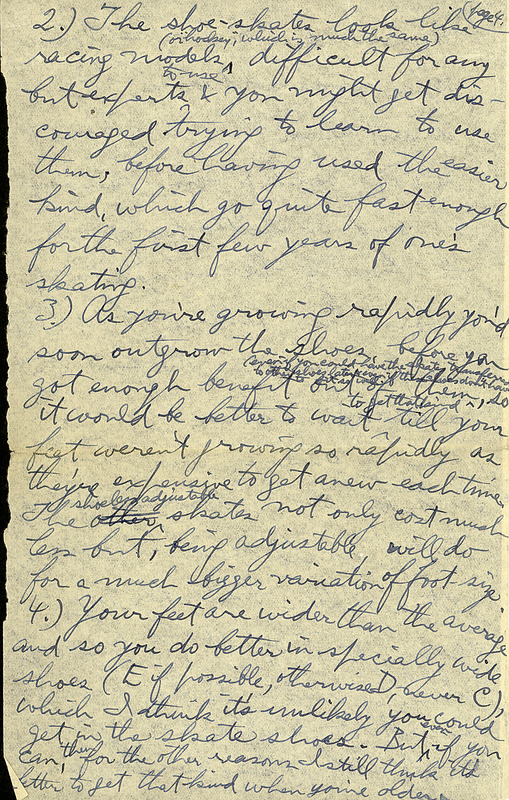 page 4.
2.) The shoe-skates look like
(or hockey, which is much the same)
racing models, difficult for any
to use
but experts & you might get dis-
couraged trying to learn to use
them, before having used the easier
kind, which go quite fast enough
for the first few years of one's
skating.
3.) As you're growing rapidly you'd
soon outgrow the shoes, before you
(even if you could have the skates transferred
to other shoes later,
got enough benefit on them, so
to get that kind
it would be better to wait till your
feet weren't growing so rapidly as
they're expensive to get anew each time.
shoeless adjustable
The other skates not only cost much
less but, being adjustable, will do
for a much bigger variation of foot-size
4.) Your feet are wider than the average
and so you do better in specially wide
shoes (E if possible, otherwise D, never C),
which I think it's unlikely you could
even
get in the skate shoes. But if you
then
can, for the other reasons I still think it
better to get that kind when you're older.